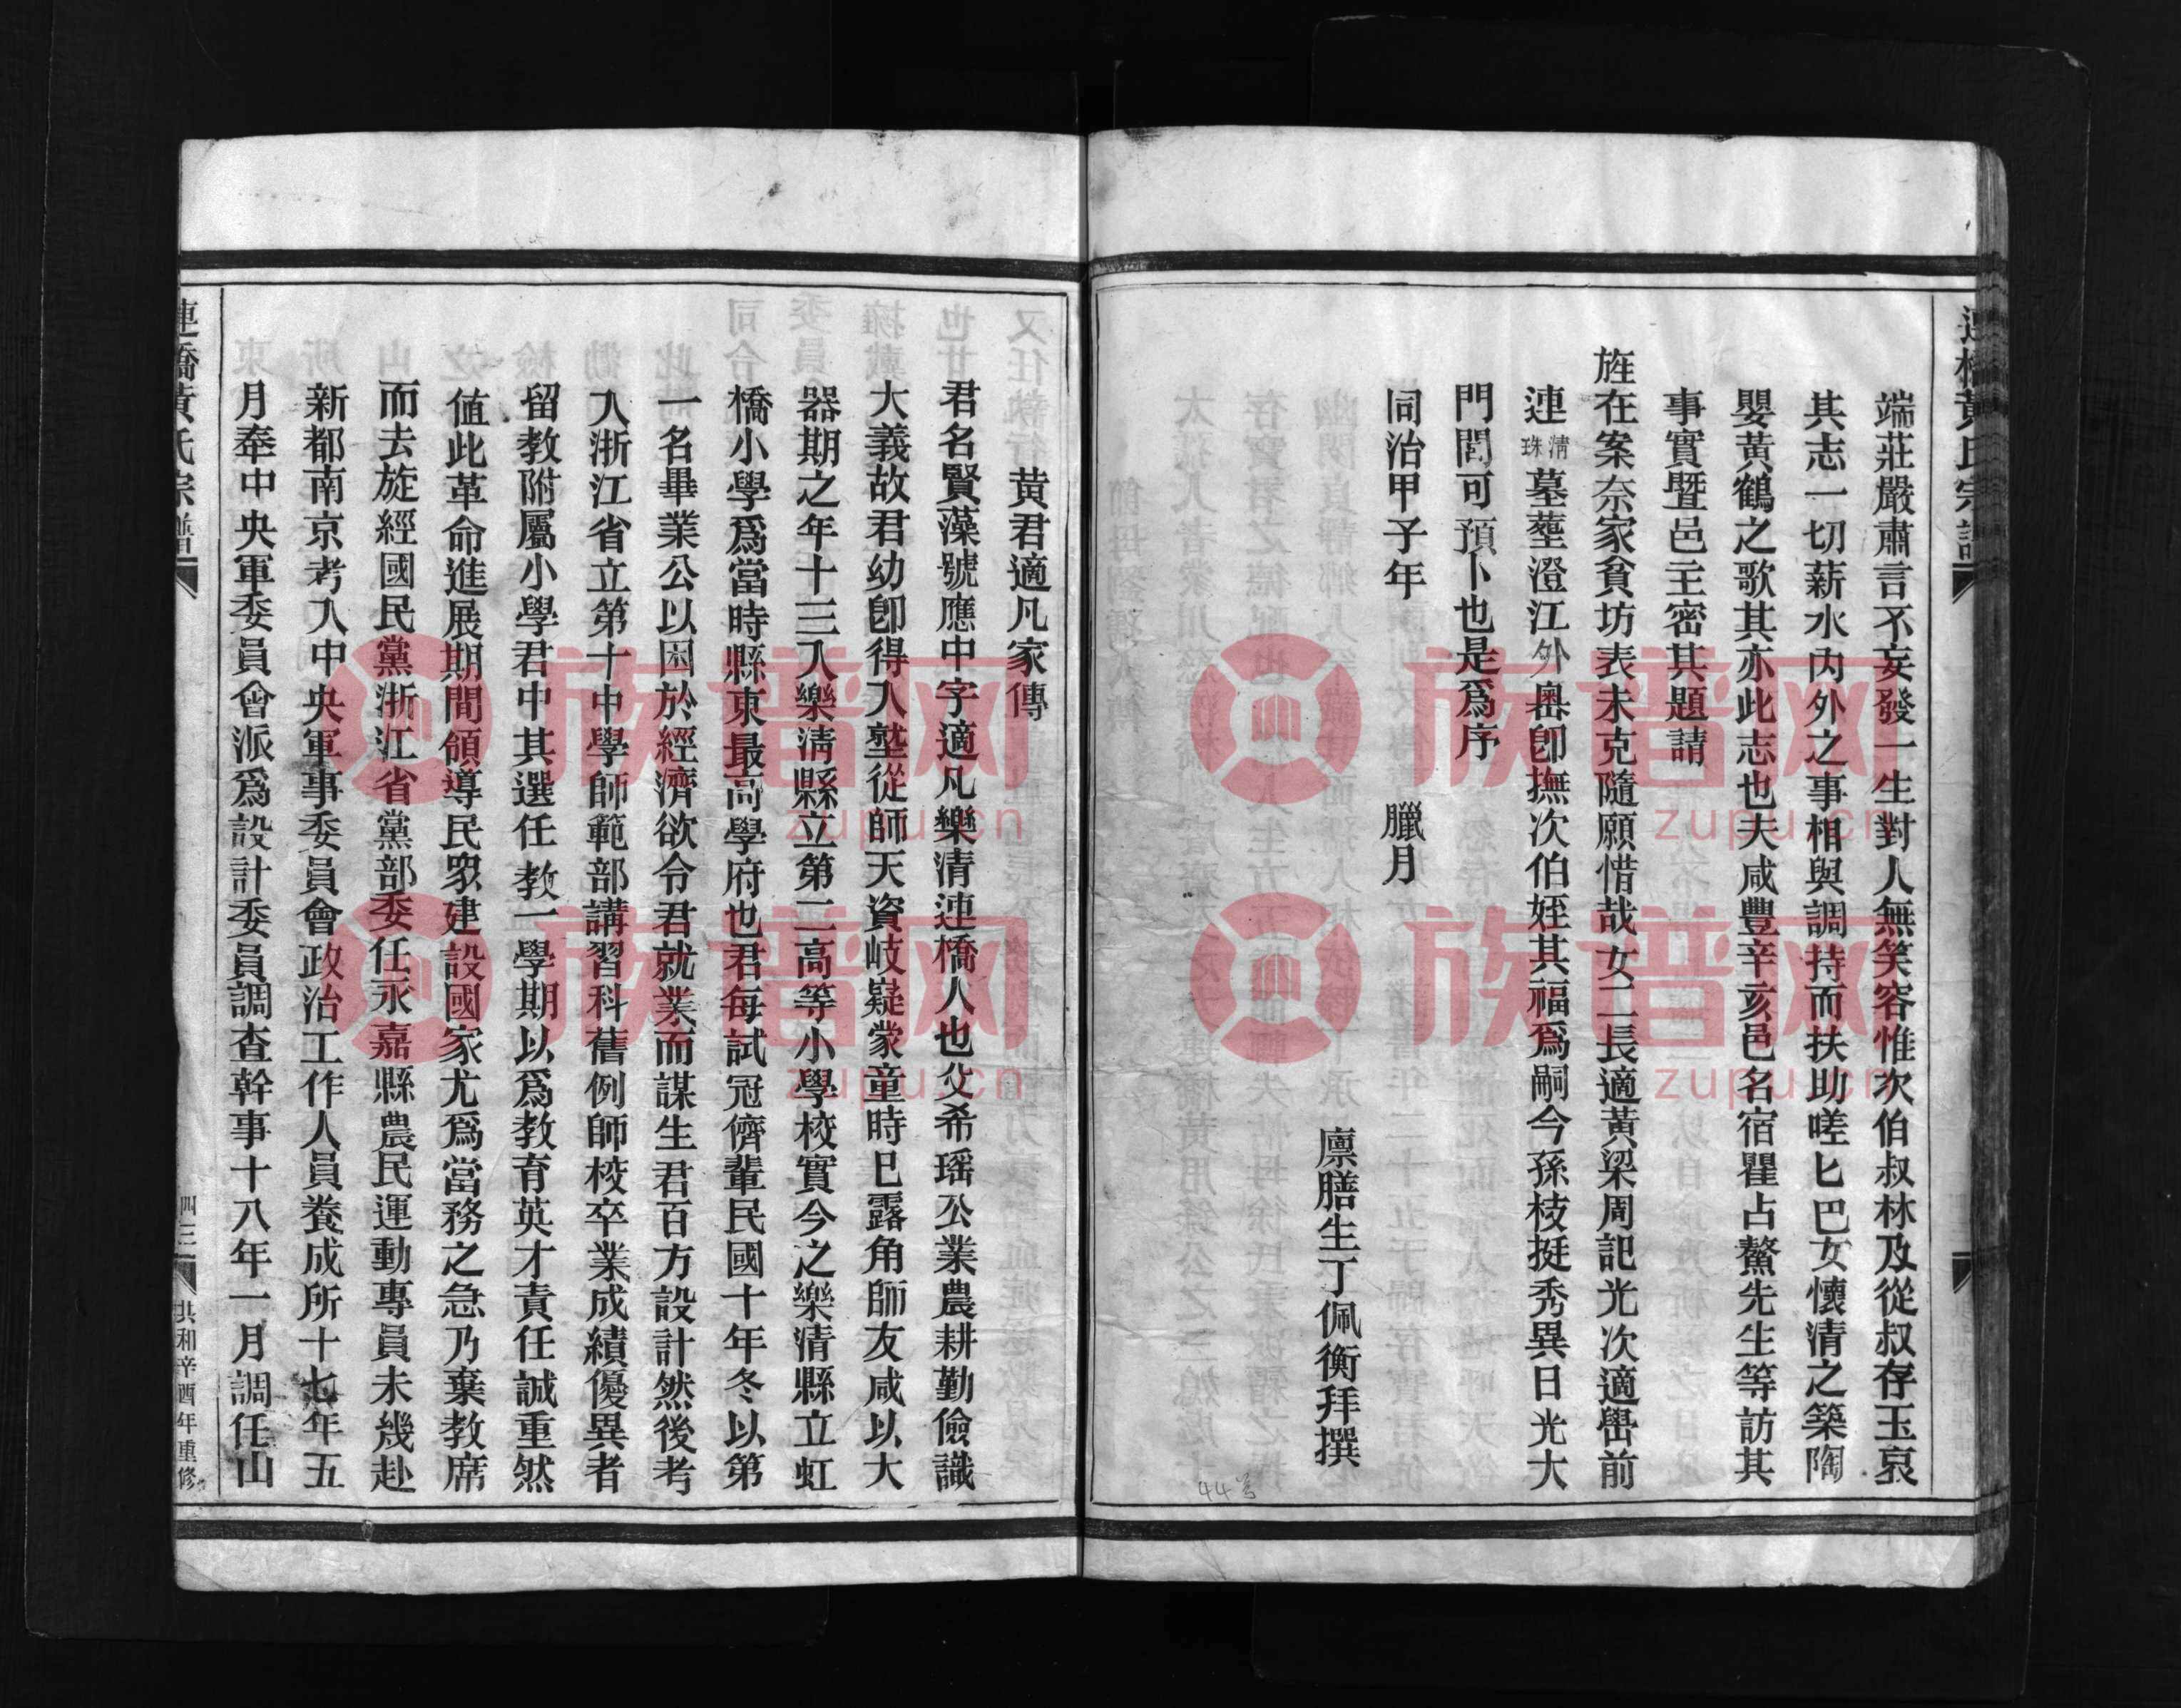 連橋黃氏宗譜
端莊嚴肅言不妄發一生對人無笑容惟次伯叔林及從叔存玉哀
其志一切薪水內外之事相與調持而扶助嗟匕巴女懷清之築陶
嬰黃鶴之歌其亦此志也夫咸豐辛亥邑名宿瞿占鰲先生等訪其
事實暨邑主密其題請
旌在案奈家貧坊表未克隨願惜哉女二長適黃梁周記光次適嶨前
連清珠墓塟澄江外嶴卽撫次伯姪其福爲嗣今孫枝挺秀異日光大
門閭可預卜也是爲序
同治甲子年 臘月
廩膳生丁佩衡拜撰
44号
黃君適凡家傳
君名賢藻號應中字適凡樂清連橋人也父希瑤公業農耕勤儉識
大義故君幼卽得入塾從師天資岐嶷蒙童時已露角師友咸以大
器期之年十三入樂清縣立第二高等小學校實今之樂清縣立虹
橋小學爲當時縣東最高學府也君每試冠儕輩民國十年冬以第
一名畢業公以困於經濟欲令君就業而謀生君百方設計然後考
入浙江省立第十中學師範部講習科舊例師校卒業成績優異者
留教附屬小學君中其選任教一學期以爲教育英才責任誠重然
值此革命進展期間領導民眾建設國家尤爲當務之急乃棄教席
而去旋經國民黨浙江省黨部委任永嘉縣農民運動專員未幾赴
新都南京考入中央軍事委員會政治工作人員養成所十七年五
月奉中央軍委員會派爲設計委員調查幹事十八年一月調任山
連橋黃氏宗譜
四三
共和辛酉年重修
族谱网
zupu.cn
族谱网
zupu.cn
族谱网
zupu.cn
族谱网
zupu.cn